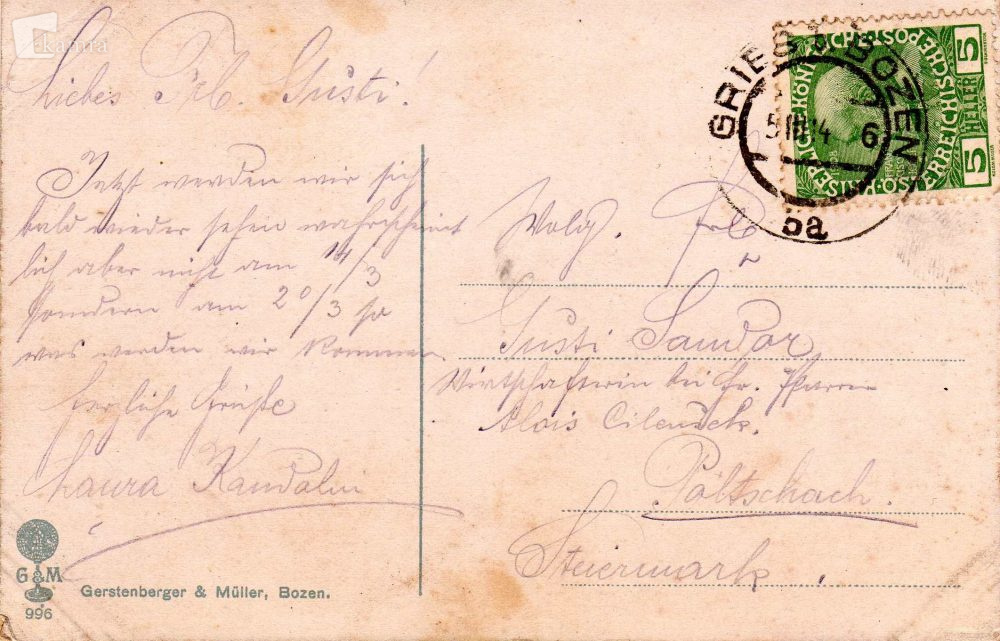 kamra
Liebes Frl. Gusti!
Jetzt werden wir sich
bald wieder sehen wahrscheint
lich aber nicht am 14/3
sondern am 20/3 so
was werden wir kommen.
Herzliche Grüße
Laura Kandolin
G & M
996
Gerstenberger & Müller, Bozen.
GRIES B. BOZEN
5 III 14 6
5a
5 HELLER 5
Wolg. Frl
Gusti Sandor
Wirtschafterin bei Hr. Pfarrer
Alois Cilenšek.
Pöltschach.
Steiermark